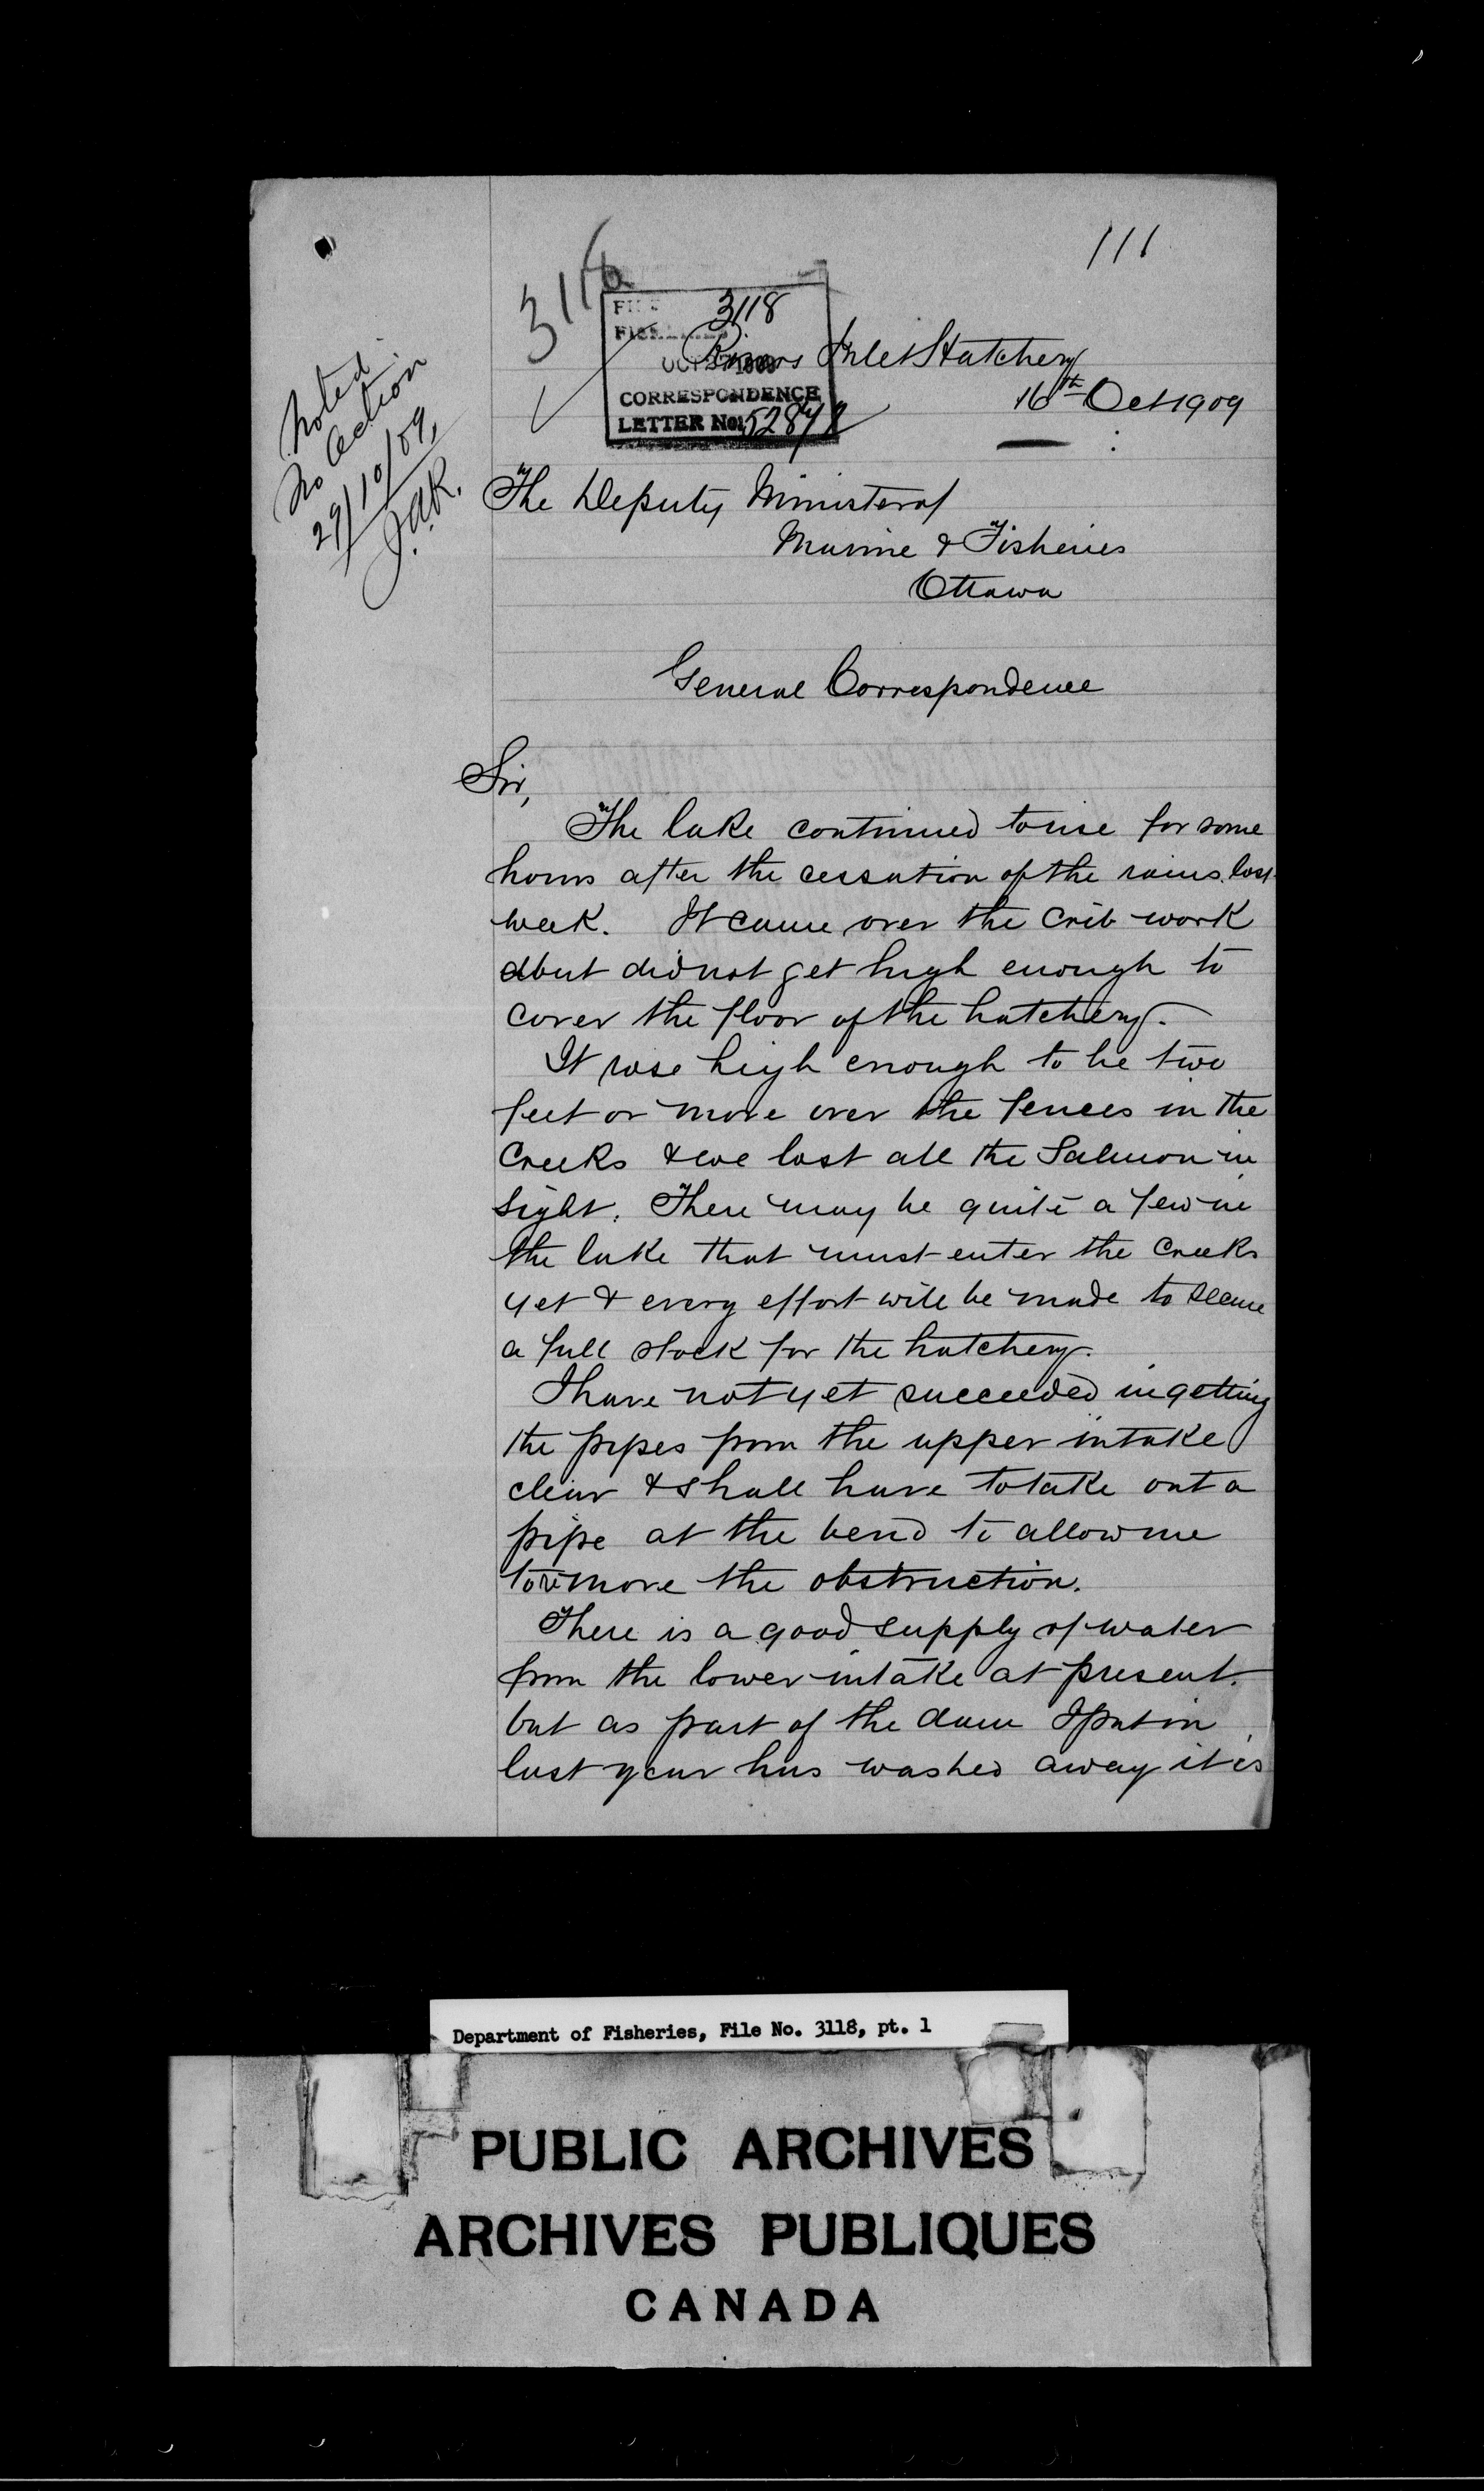 111
3118
FILE 3118
FISHERIES
Rivers Inlet Hatchery
OCT 27 1909
CORRESPONDENCE
16th Oct 1909
LETTER No. 
Noted
No action
29/10/09,
J.A.R.
The Deputy Minister of
Marine & Fisheries
Ottawa
General Correspondence
Sir,
The lake continued to rise for some
hours after the cessation of the rains last
week. It came over the crib work
but did not get high enough to
cover the floor of the hatchery.
It rose high enough to be two
feet or more over the fences in the
Creeks & we lost all the Salmon in
sight. There may be quite a few in
the lake that must enter the Creeks
yet & every effort will be made to secure
a full stock for the hatchery.
I have not yet succeeded in getting
the pipes from the upper intake
clear & shall have to take out a
pipe at the bend to allow me
to remove the obstruction.
There is a good supply of water
from the lower intake at present.
but as part of the dam I put in
last year has washed away it is
Department of Fisheries, File No. 3118, pt. 1
PUBLIC ARCHIVES
ARCHIVES PUBLIQUES
CANADA